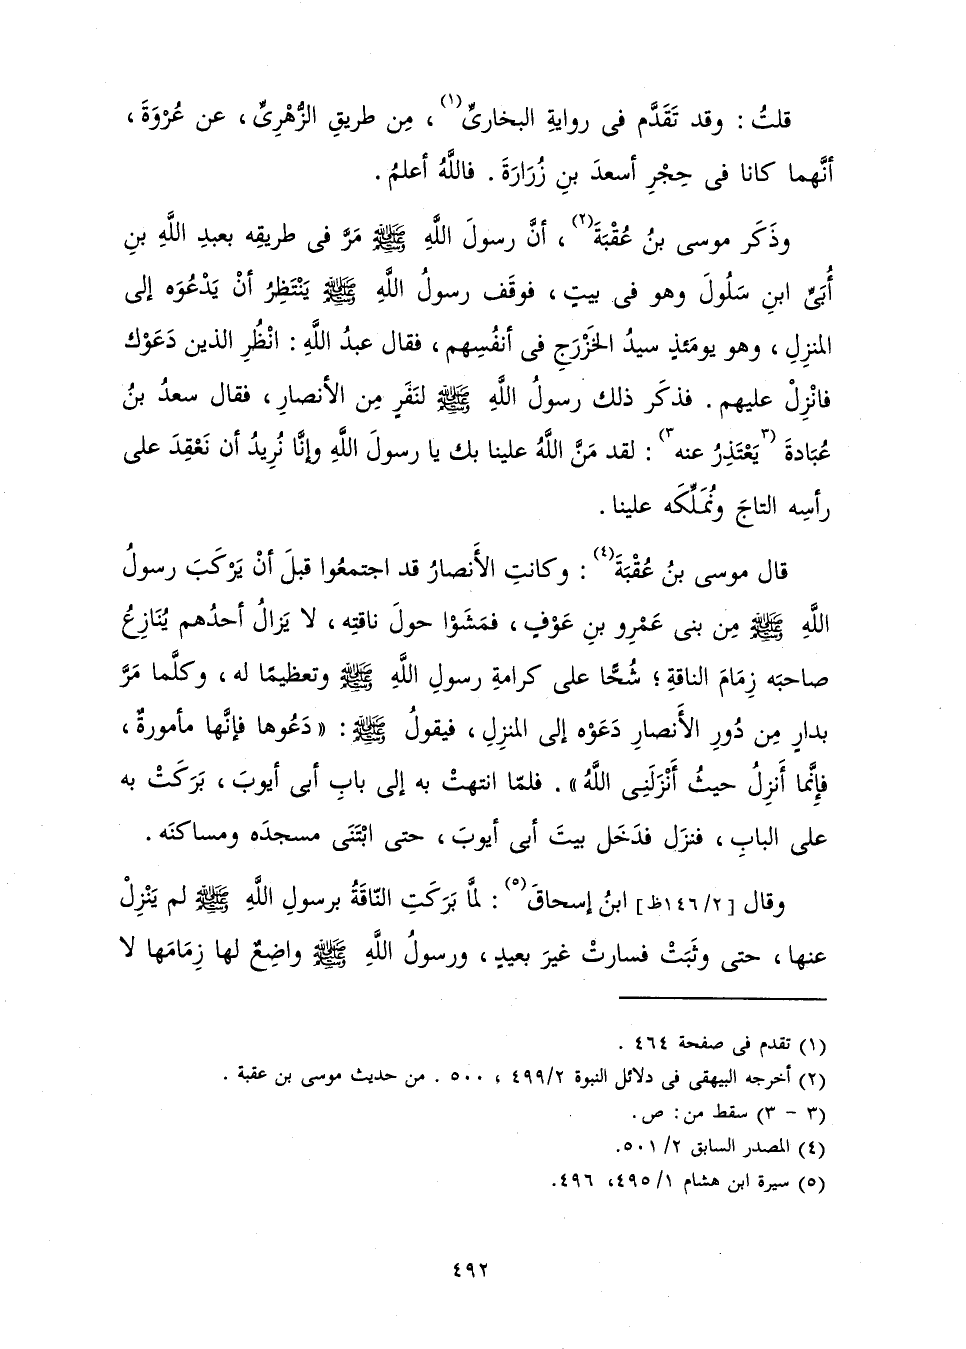 قلتُ : وقد تَقَدَّم فى روايةِ البخارىِّ(١) ، مِن طريقِ الزُّهْرِىِّ ، عن عُرْوَةَ ،
أنَّهما كانا فى حِجْرِ أسعدَ بنِ زُرَارَةَ . فاللَّهُ أعلمُ .
وذَكَر موسى بنُ عُقْبَةَ(٢) ، أنَّ رسولَ اللَّهِ ﷺ مَرَّ فى طريقِه بعبدِ اللَّهِ بنِ
أُبَىٍّ ابنِ سَلُولَ وهو فى بيتٍ ، فوقَف رسولُ اللَّهِ ﷺ يَنْتَظِرُ أنْ يَدْعُوَه إلى
المنزِلِ ، وهو يومَئذٍ سيدُ الخَزْرَجِ فى أنفُسِهم ، فقال عبدُ اللَّهِ : انْظُرِ الذين دَعَوْك
فانْزِلْ عليهم . فذكَر ذلك رسولُ اللَّهِ ﷺ لنَفَرٍ مِن الأنصارِ ، فقال سعدُ بنُ
عُبَادةَ (٣يَعْتَذِرُ عنه٣) : لقد مَنَّ اللَّهُ علينا بك يا رسولَ اللَّهِ وإنَّا نُرِيدُ أن نَعْقِدَ على
رأسِه التاجَ ونُمَلِّكَه علينا .
قال موسى بنُ عُقْبَةَ(٤) : وكانتِ الأَنصارُ قد اجتمعُوا قبلَ أنْ يَرْكَبَ رسولُ
اللَّهِ ﷺ مِن بنى عَمْرِو بنِ عَوْفٍ ، فمَشَوْا حولَ ناقتِه ، لا يَزالُ أحدُهم يُنَازِعُ
صاحبَه زِمَامَ الناقةِ ؛ شُحًّا على كرامةِ رسولِ اللَّهِ ﷺ وتعظيمًا له ، وكلَّما مَرَّ
بدارٍ مِن دُورِ الأَنصارِ دَعَوْه إلى المنزِلِ ، فيقولُ ﷺ : « دَعُوها فإنَّها مأمورةٌ ،
فإنَّما أَنزِلُ حيثُ أَنْزَلَنِى اللَّهُ » . فلمّا انتهتْ به إلى بابِ أبى أيوبَ ، بَرَكَتْ به
على البابِ ، فنزَل فدَخَل بيتَ أبى أيوبَ ، حتى ابْتَنَى مسجدَه ومساكنَه .
وقال [١٤٦/٢ظ] ابنُ إسحاقَ(٥) : لمَّا بَرَكَتِ النّاقَةُ برسولِ اللَّهِ ﷺ لم يَنْزِلْ
عنها ، حتى وثَبَتْ فسارتْ غيرَ بعيدٍ ، ورسولُ اللَّهِ ﷺ واضِعٌ لها زِمَامَها لا
(١) تقدم فى صفحة ٤٦٤ .
(٢) أخرجه البيهقى فى دلائل النبوة ٤٩٩/٢ ، ٥٠٠ . من حديث موسى بن عقبة .
(٣ - ٣) سقط من : ص .
(٤) المصدر السابق ٥٠١/٢.
(٥) سيرة ابن هشام ٤٩٥/١، ٤٩٦.
٤٩٢